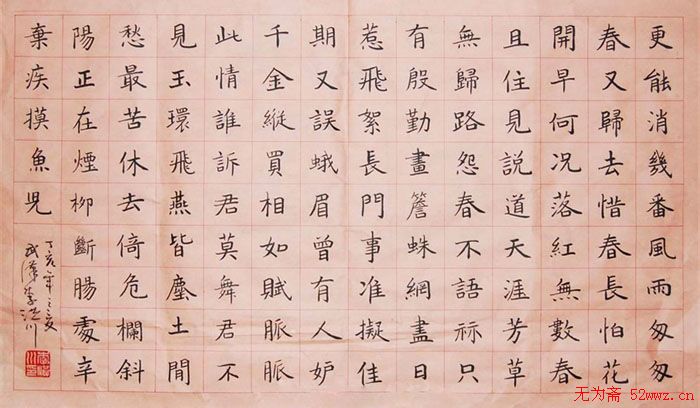 更能消幾番風雨匆匆
春又歸去惜春長怕花
開早何况落紅無數春
且住見説道天涯芳草
無歸路怨春不語祘只
有殷勤畫簷蛛網盡日
惹飛絮長門事准擬佳
期又誤蛾眉曾有人妒
千金縱買相如賦脈脈
此情誰訴君莫舞君不
見玉環飛燕皆塵土閒
愁最苦休去倚危欄斜
陽正在煙柳斷腸處辛
棄疾摸魚兒
丁亥年之夏
无为斋 52wwz.cn